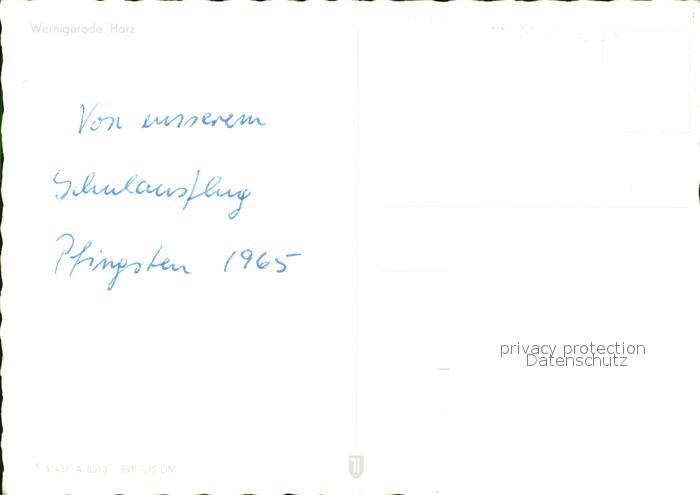 Wernigerode / Harz
Von unserem
Schulausflug
Pfingsten 1965
privacy protection
Datenschutz
EVP -,15 DM